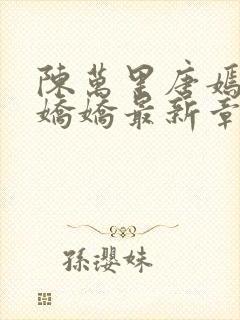 陳萬里唐嫣
嬌嬌最新章
孫瓔妹